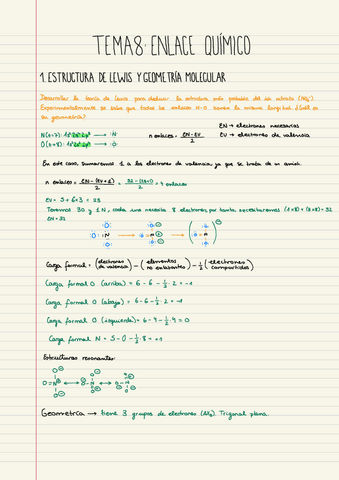 TEMA 8: ENLACE QUÍMICO
1. ESTRUCTURA DE LEWIS Y GEOMETRÍA MOLECULAR
Desarrollar la teoría de Lewis para deducir la estructura más probable del ión nitrato (NO₃⁻)
Experimentalmente se sabe que todos los enlaces N-O tienen la misma longitud. ¿Cuál es
su geometría?
EN → electrones necesarios
N (z=7): 1s²2s²2p³ → N
n enlaces = EN - EV / 2
EV → electrones de valencia
O (z=8): 1s²2s²2p⁴ → O
En este caso, sumaremos 1 a los electrones de valencia, ya que se trata de un anión.
n enlaces = EN - (EV + 1) / 2 = 32 - (23+1) / 2 = 4 enlaces
EV = 5 + 6×3 = 23
Tenemos 3O y 1N, cada uno necesita 8 electrones, por tanto, necesitaremos (3×8) + (1×8) = 32
EN = 32
Carga formal = (electrones de valencia) - (electrones no enlazantes) - 1/2 (electrones compartidos)
Carga formal O (arriba) = 6 - 6 - 1/2 · 2 = -1
Carga formal O (abajo) = 6 - 6 - 1/2 · 2 = -1
Carga formal O (izquierda) = 6 - 4 - 1/2 · 4 = 0
Carga formal N = 5 - 0 - 1/2 · 8 = +1
Estructuras resonantes:
Geometría → tiene 3 grupos de electrones (AX₃). Trigonal plana.